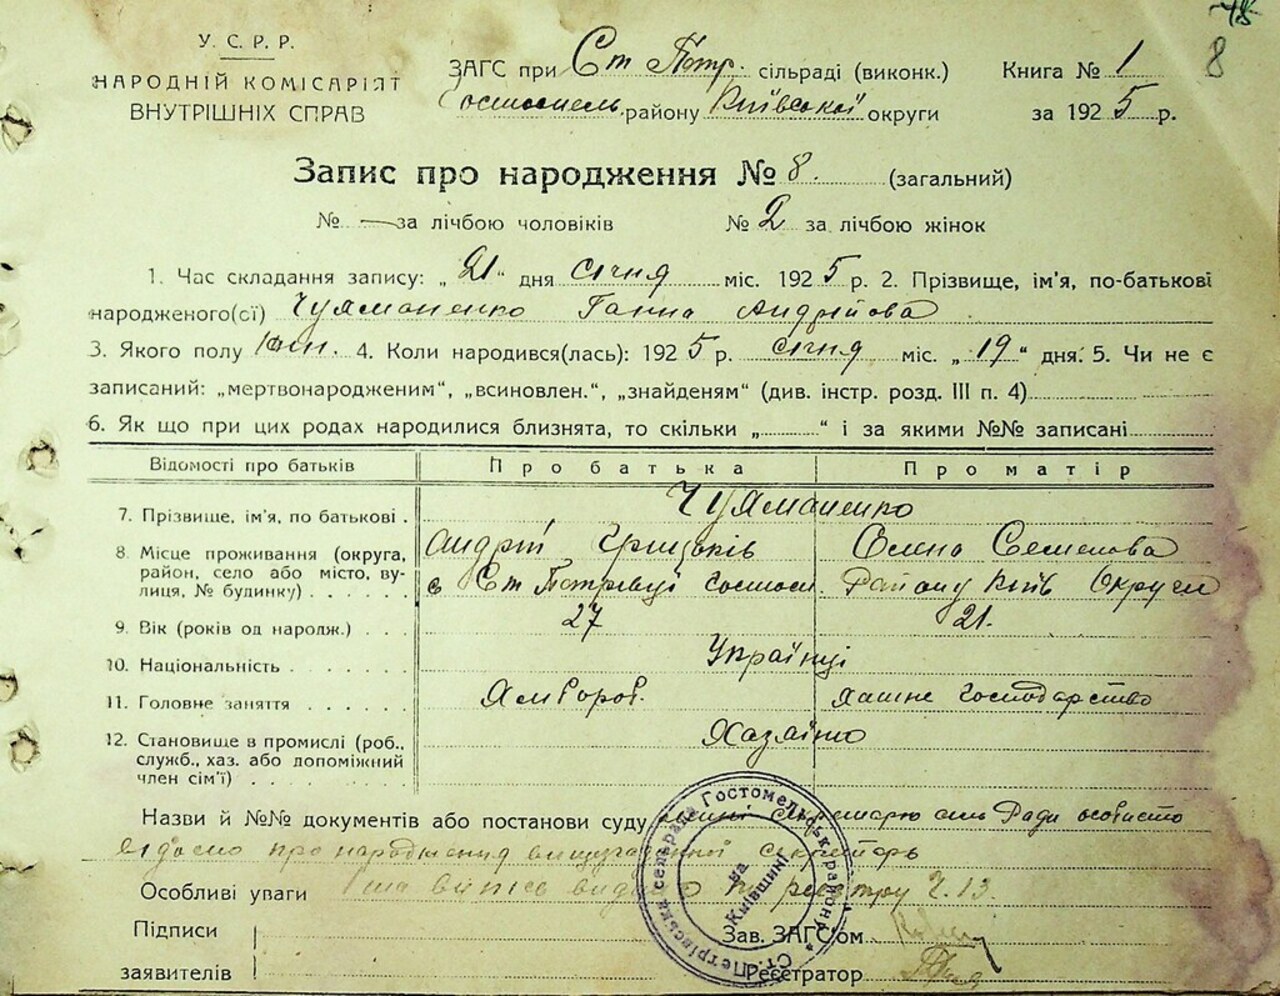 78
8
У. С. Р. Р.
НАРОДНІЙ КОМІСАРІЯТ
ВНУТРІШНІХ СПРАВ
ЗАГС при Ст Петр. сільраді (виконк.)
Гостомель. району Київської округи
Книга № 1
за 1925 р.
Запис про народження № 8. (загальний)
№ — за лічбою чоловіків № 2 за лічбою жінок
1. Час складання запису: „21“ дня січня міс. 1925 р. 2. Прізвище, ім'я, по-батькові
народженого(сї) Чуяманенко Ганна Андрійова
3. Якого полу жін. 4. Коли народився(лась): 1925 р. січня міс. „19“ дня. 5. Чи не є
записаний: „мертвонародженим“, „всиновлен.“, „знайденям“ (див. інстр. розд. III п. 4)
6. Як що при цих родах народилися близнята, то скільки „ “ і за якими №№ записані
Відомості про батьків Про батька Про матір
7. Прізвище, ім'я, по батькові . Чуяманенко
Андрій Грицьків Олена Семенова
8. Місце проживання (округа,
район, село або місто, ву-
лиця, № будинку) . . . . . . с Ст Петрівці Гостом. Району Київ Округи
9. Вік (років од народж.) . . . 27 21.
10. Національність . . . . . . . Українці
11. Головне заняття . . . . . . Хлібороб. хатне господарство
12. Становище в промислі (роб.,
служб., хаз. або допоміжний
член сім'ї) . . . . . . . . Хазяїно
Назви й №№ документів або постанови суду секретарю сіль Ради особисто
про народження секретарь
Особливі уваги по реєстру Ч. 13.
Підписи
заявителів
Зав. ЗАГС'ом
Реєстратор
Ст. Петрівська сельрада Гостомельськ. району
на Київщині